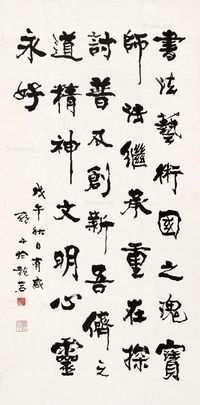 書法藝術國之瑰寶
師法繼承重在探
討普及創新吾儕之
道精神文明心靈
永好
戊午秋日有感